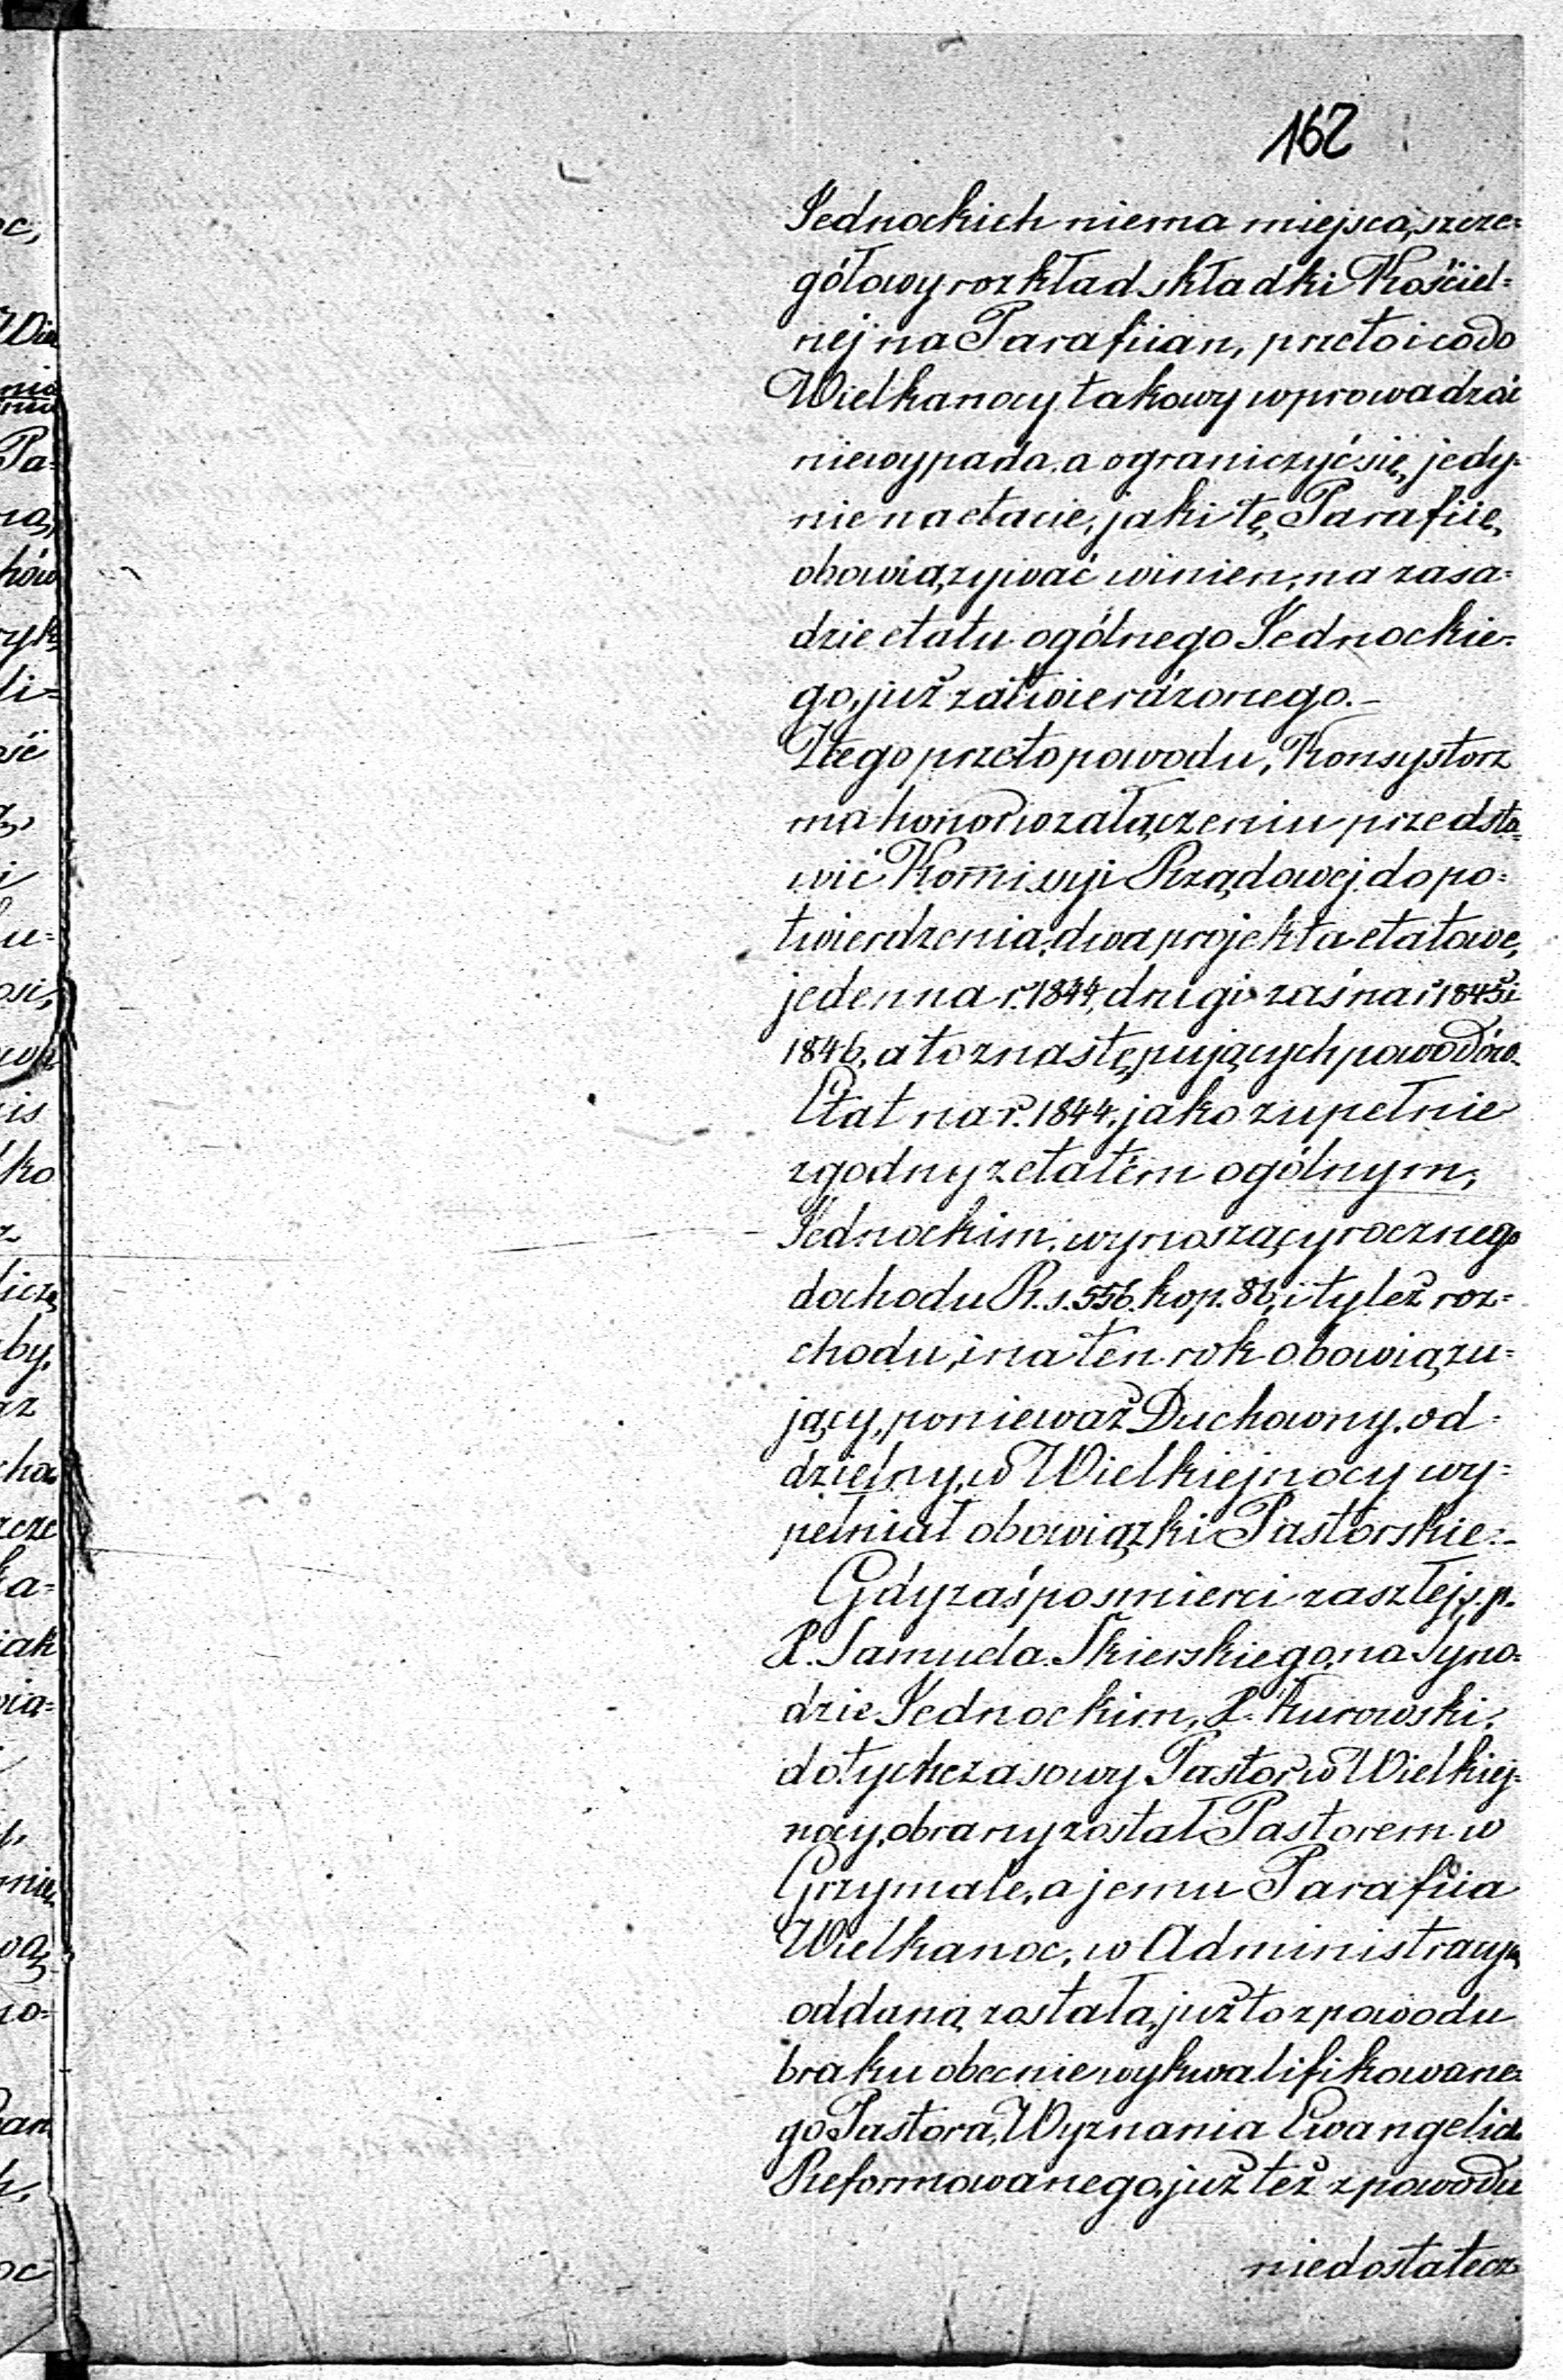 162
Jednockich niema miejsca, szcze=
gółowy rozkład składki Kościel=
nej na Parafiian, przeto i co do
Wielkanocy takowy wprowadzać
niewypada, a ograniczyć się jedy=
nie na etacie, jaki tę Parafiię
obowiązywać winien, na zasa=
dzie etatu ogólnego Jednockie=
go, już zatwierdzonego.-
Z tego przeto powodu, Konsystorz
ma honor w załączeniu przedsta=
wić Kommissyi Rządowej do po=
twierdzenia, dwa projekta etatowe,
jeden na r. 1844, drugi zaś na r. 1845 i
1846, a to z następujących powodów.
Etat na r. 1844, jako zupełnie
zgodny z etatem ogólnym,
Jednockim, wynoszący rocznego
dochodu R. s. 556. kop. 86, i tyleż roz=
chodu, i na ten rok obowiązu=
jący, ponieważ Duchowny, od=
dzielny, w Wielkiejnocy wy=
pełniał obowiązki Pastorskie.-
Gdy zaś po śmierci zaszłej ś. p.
X. Samuela Skierskiego, na Syno=
dzie Jednockim, X. Kurowski,
dotychczasowy Pastor w Wielkiej=
nocy, obrany został Pastorem w
Grzymale, a jemu Parafiia
Wielkanoc, w Administracyą
oddaną została, już to z powodu
braku obecnie wykwalifikowane=
go Pastora, Wyznania Ewangelick.
Reformowanego, już też z powodu
niedostatecz